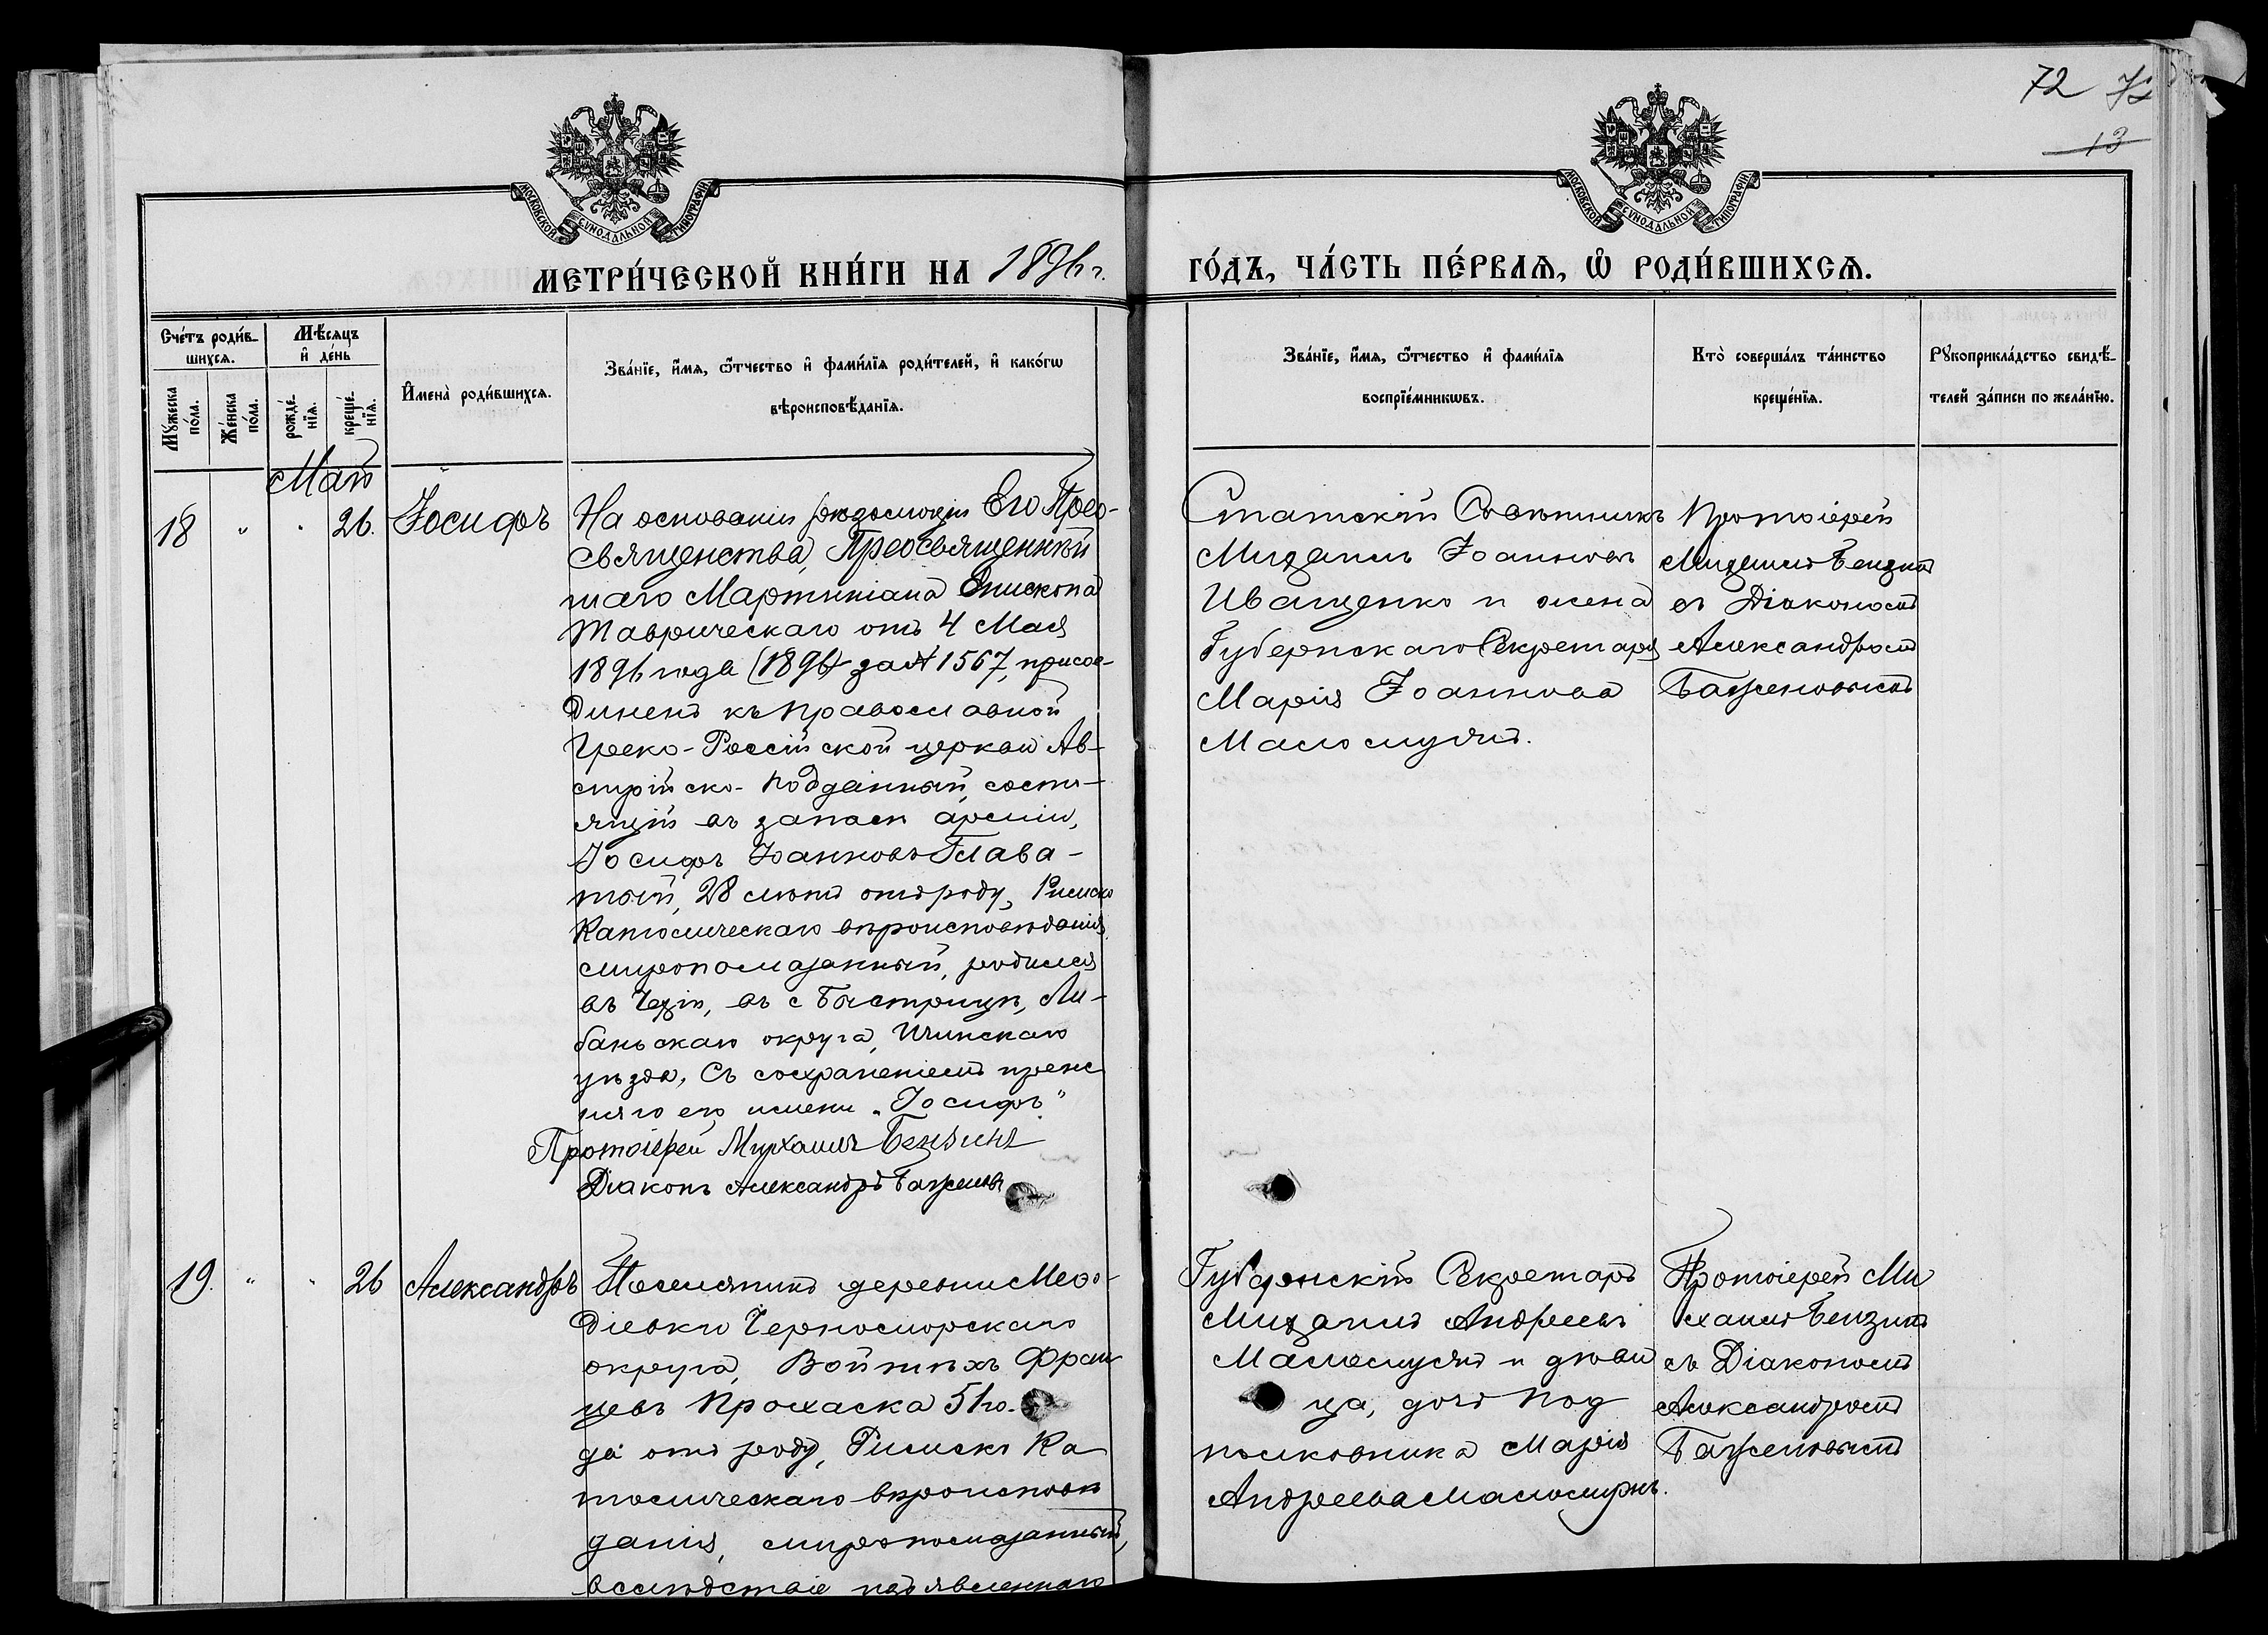 72
13
МОСКОВСКОЙ СУНОДАЛЬНОЙ ТИПОГРАФІИ
МОСКОВСКОЙ СУНОДАЛЬНОЙ ТИПОГРАФІИ
МЕТРИ́ЧЕСКОЙ КНИ́ГИ НА 1896 г.
ГО́ДЪ, ЧА́СТЬ ПЕ́РВАѦ, Ѽ РОДИ́ВШИХСѦ.
Сче́тъ роди́в-
шихсѧ.
Мѣ́сѧцъ
и҆ де́нь
Мꙋ́жеска
по́ла.
Же́нска
по́ла.
рожде́-
нїѧ.
креще́-
нїѧ.
И҆мена̀ роди́вшихсѧ.
Зва́нїе, и҆́мѧ, ѻ҆́тчество и҆ фами́лїѧ роди́телей, и҆ како́гѡ
вѣроисповѣ́данїѧ.
Зва́нїе, и҆́мѧ, ѻ҆́тчество и҆ фами́лїѧ
воспрїе́мникѡвъ.
Кто̀ соверша́лъ та́инство
креще́нїѧ.
Рꙋкоприкла́дство свидѣ́-
телей за́писи по жела́нїю.
Май
18 " " 26. Іосифъ
На основаніи резолюціи Его Прео-
священства, Преосвященнѣй
шаго Мартиніана Епископа
Таврическаго отъ 4 Мая
1896 года (1896) за № 1567, присое-
диненъ къ православной
Греко-Россійской церкви Ав-
стрійско-подданный, состо-
ящій въ запасѣ арміи,
Іосифъ Іоанновъ Глава-
тый, 28 лѣтъ отъ роду, Римско
Католическаго вѣроисповѣданія,
миропомазанный, родился
въ Чехіи, въ с Быстрицѣ, Ли-
баньскаго округа, Ичинскаго
уѣзда, Съ сохраненіемъ преж
няго его имени „Іосифъ"
Протоіерей Михаилъ Бензинъ
Діаконъ Александръ Баженовъ
Статскій Совѣтникъ
Михаилъ Іоанновъ
Иващенко и жена
Губернскаго Секретаря
Марія Іоаннова
Маломужъ.
Протоіерей
Михаилъ Бензинъ
съ Діакономъ
Александромъ
Баженовымъ
19. " " 26 Александръ
Поселянинъ деревни Меѳо-
діевки Черноморскаго
округа, Войтѣхъ Фран
цевъ Прохаска 51 го-
да отъ роду, Римско Ка
толическаго вѣроисповѣ
данія, миропомазанный,
вслѣдствіе изъявленнаго
Губернскій Секретарь
Михаилъ Андреевъ
Маломужъ и дѣви
ца, дочь Под
полковника Марія
Андреева Маломужъ.
Протоіерей Ми
хаилъ Бензинъ
съ Діакономъ
Александромъ
Баженовымъ